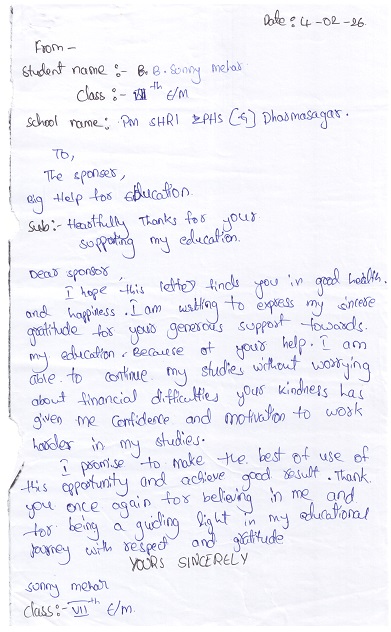 Date: 4-02-26
From -
Student name :- B. B. Sonny mehar
Class :- VII th E/M
School name: PM SHRI ZPHS (G) Dharmasagar.
To,
The sponser,
Big Help for Education.
Sub:- Heartfully Thanks for your
supporting my education.
Dear sponsor,
I hope this letter finds you in good health.
and happiness. I am writing to express my sincere
gratitude for your generous support towards.
my education. Because of your help. I am
able to continue my studies without worrying
about financial difficulties your kindness has
given me confidence and motivation to work
harder in my studies.
I promise to make the best of use of
this opportunity and achieve good result. Thank
you once again for believing in me and
for being a guiding light in my educational
journey with respect and gratitude
YOURS SINCERELY
sonny mehar
Class:- VII th E/M.